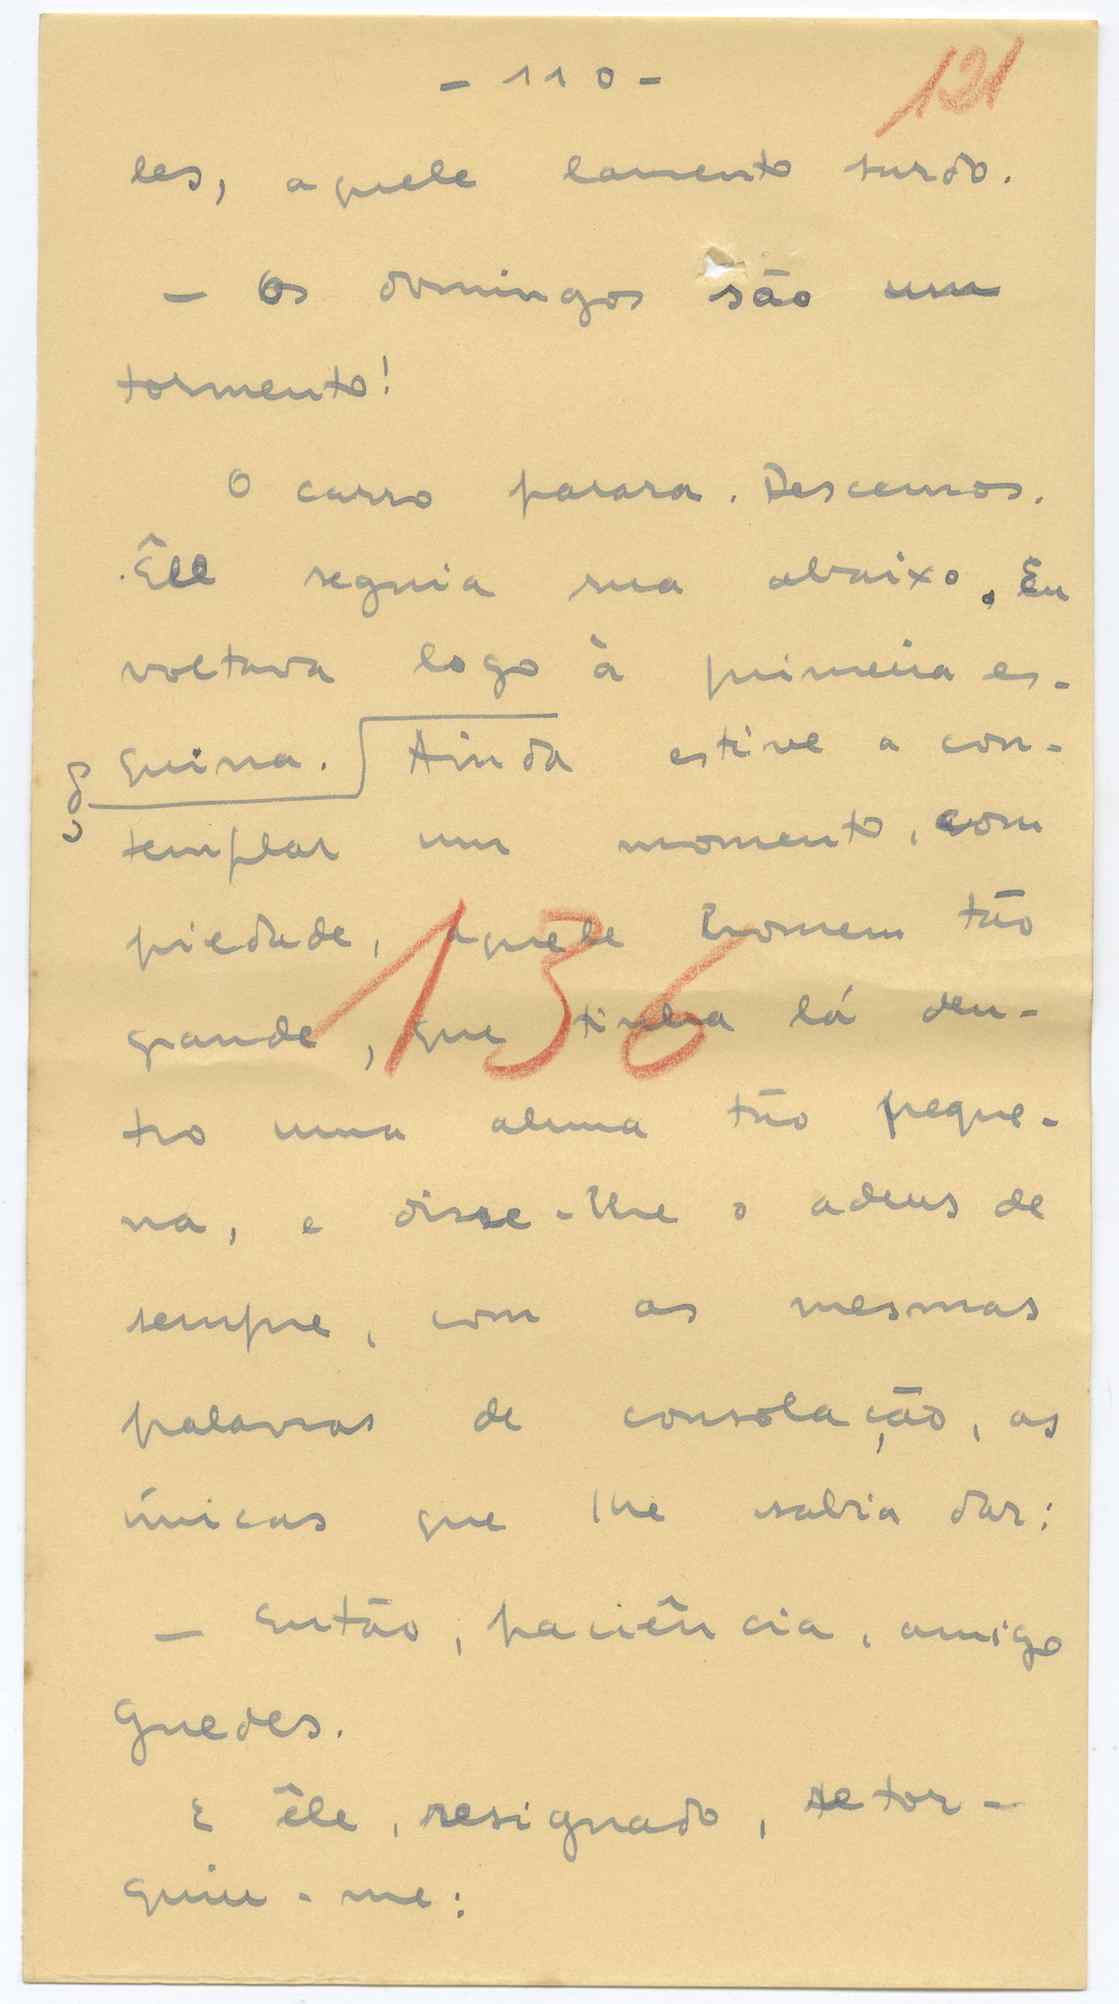 - 110 -
121
les, aquele lamento surdo.
— Os domingos são um
tormento!
O carro parara. Descemos.
Êle seguia rua abaixo. Eu
voltava logo à primeira es-
quina. Ainda estive a con-
templar um momento, com
piedade, aquele homem tão
136
grande, que tinha lá den-
tro uma alma tão peque-
na, e disse-lhe o adeus de
sempre, com as mesmas
palavras de consolação, as
únicas que lhe sabia dar:
— Então, paciência, amigo
Guedes.
E êle, resignado, retor-
quiu-me: